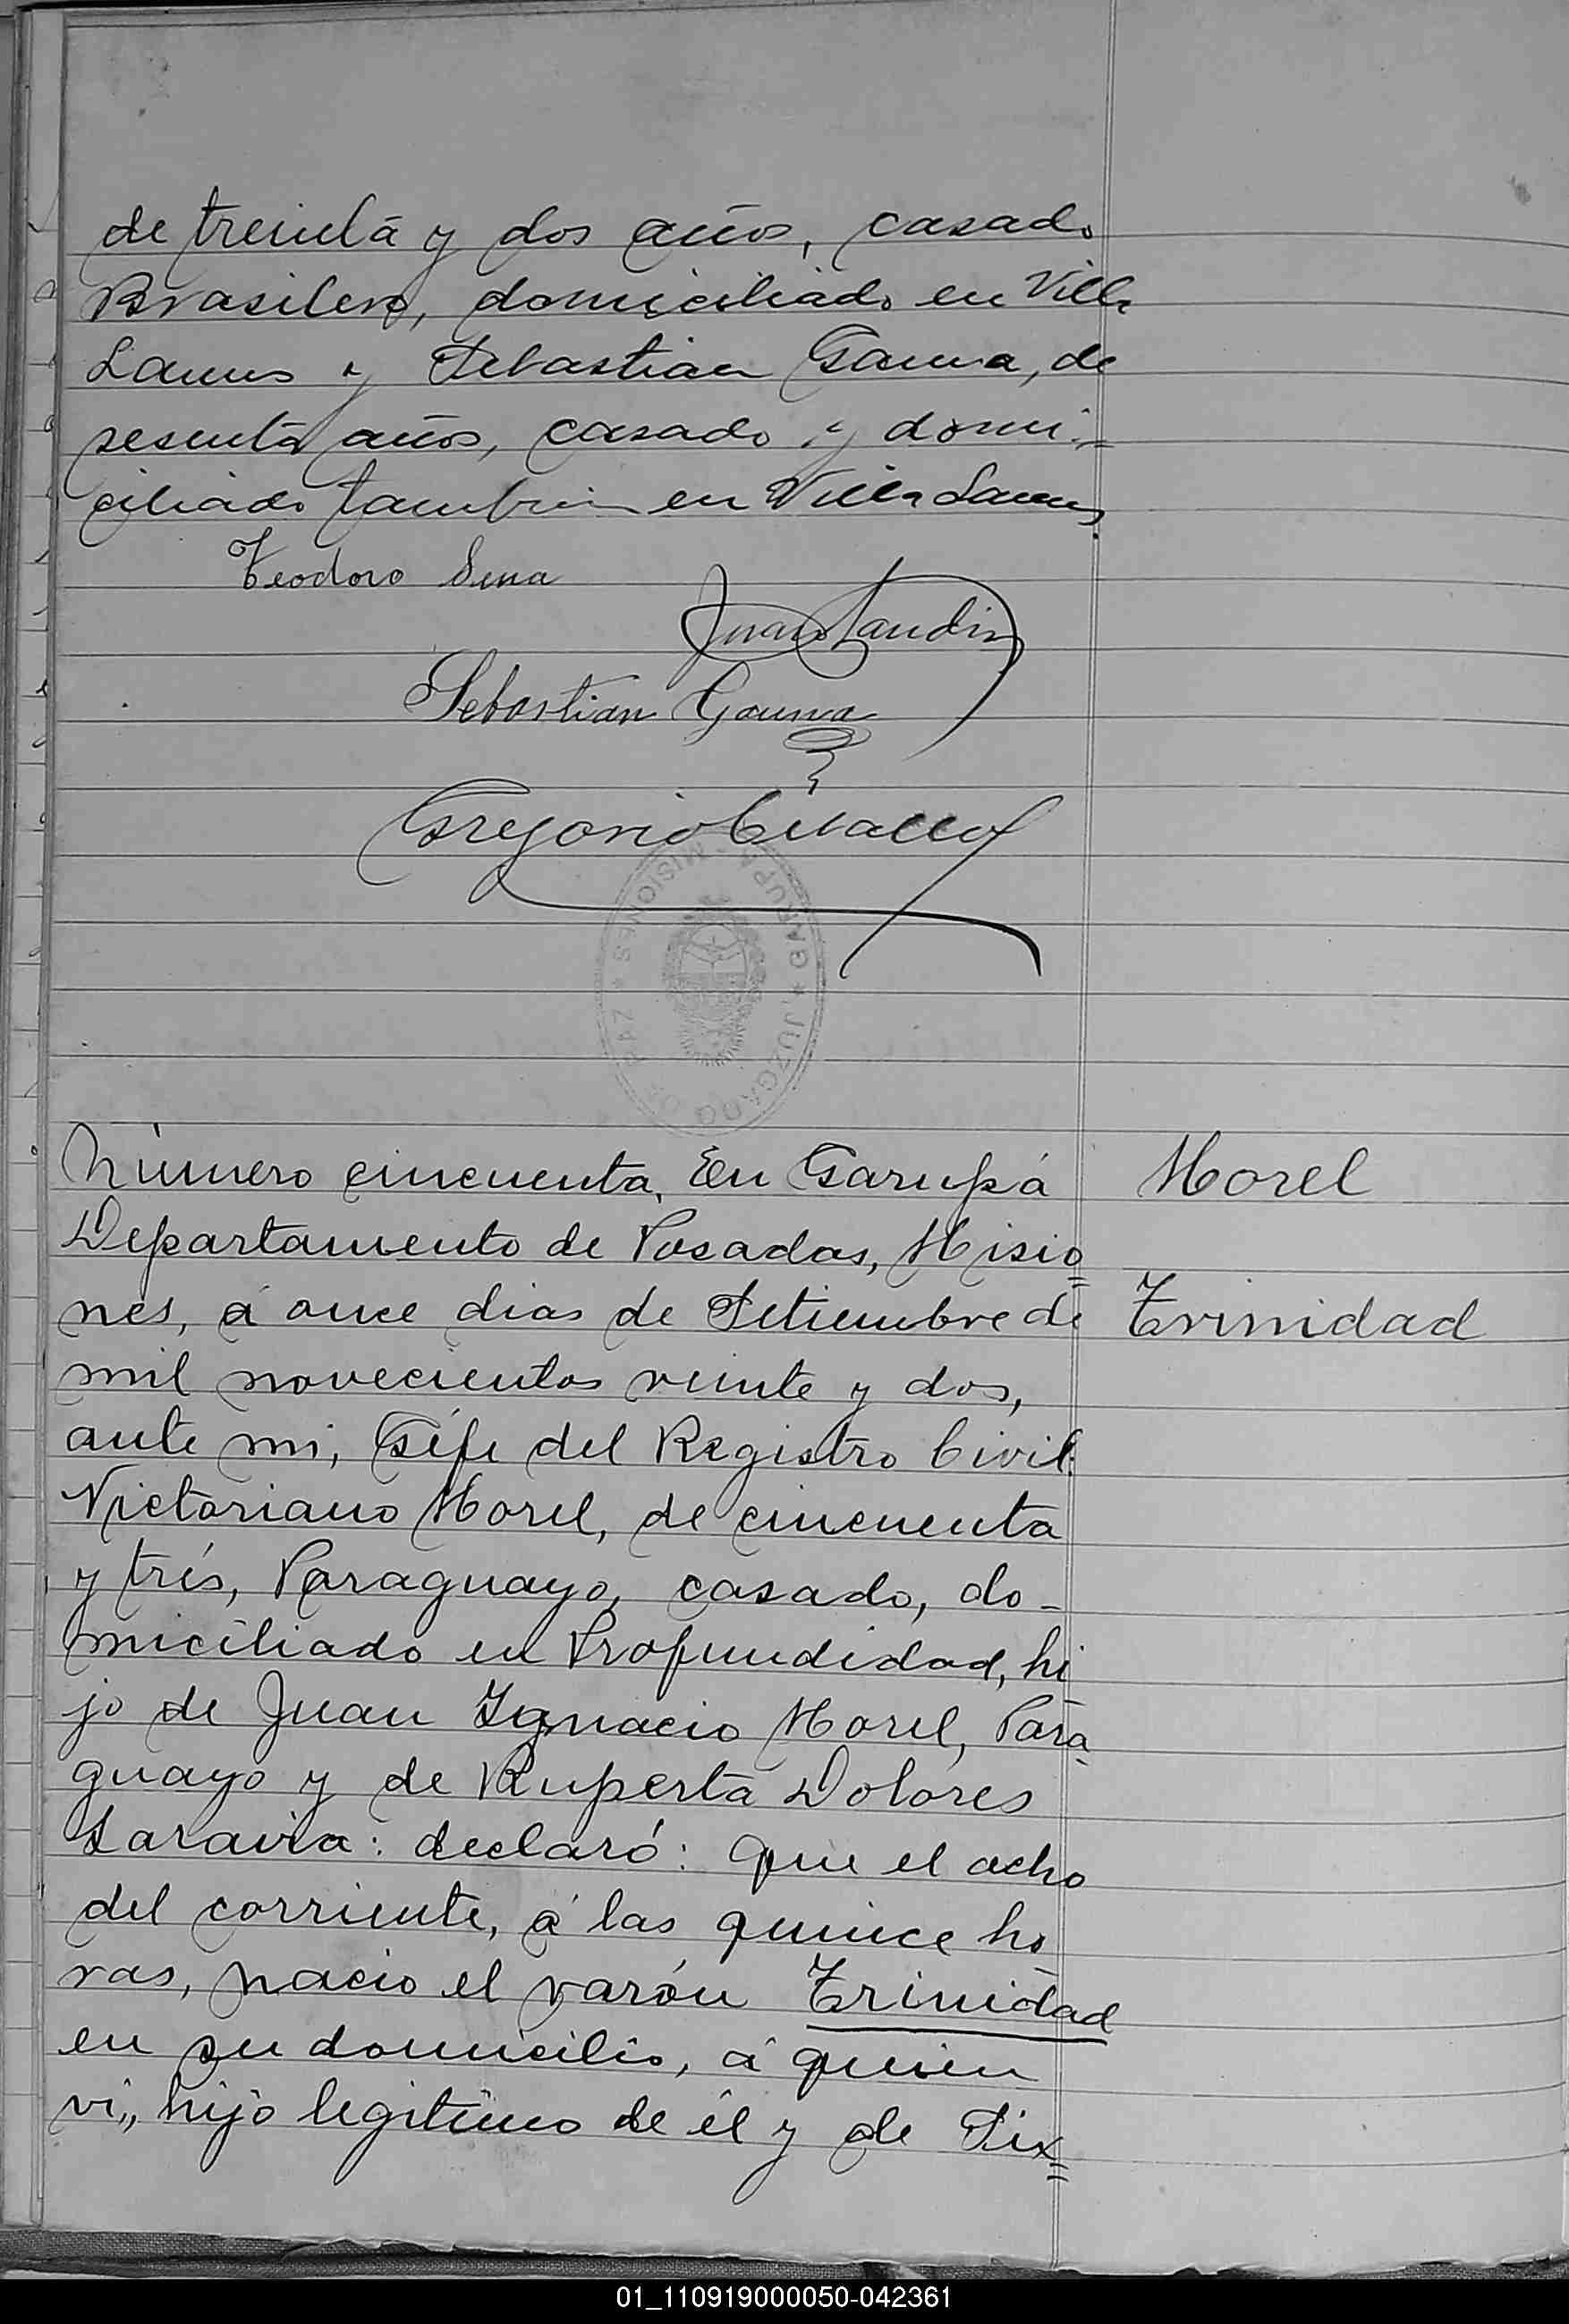 de treinta y dos años, casado
Brasilero, domiciliado en Villa
Lanus y Sebastian Gauna, de
sesenta años, casado y domi=
ciliado tambien en Villa Lanus
Teodoro Sena
Juan Landin
Sebastian Gauna
Gregorio Cevallo
JUZGADO DE PAZ * MISIONES - GARUPA *
Número cincuenta. En Garupá
Departamento de Posadas, Misio=
nes, á once dias de Setiembre de
mil novecientos veinte y dos,
ante mi, Géfe del Registro Civil:
Victoriano Morel, de cincuenta
y trés, Paraguayo, casado, do-
miciliado en Profundidad, hi
jo de Juan Ygnacio Morel, Para-
guayo y de Ruperta Dolores
Saraira: declaró: que el ocho
del corriente, á las quince ho
ras, nacio el varón Trinidad
en su domicilio, á quien
vi,, hijo legitimo de él y de Six=
Morel
Trinidad
01_110919000050-042361